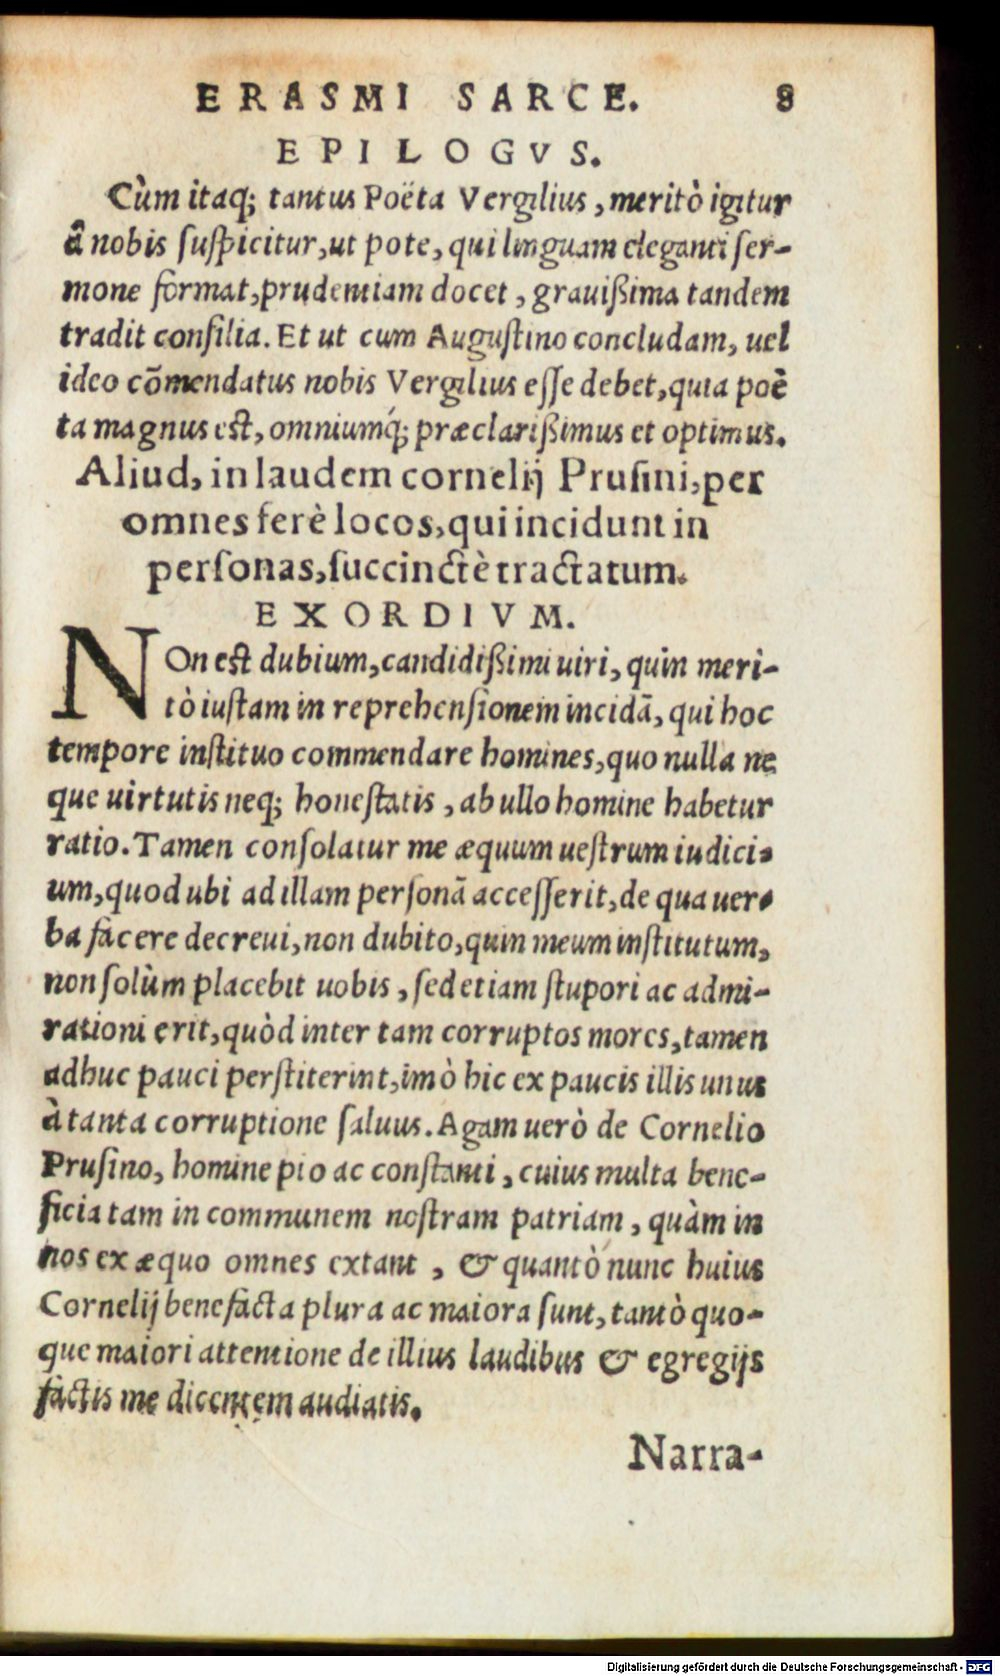 ERASMI SARCE. 8
EPILOGVS.
Cùm itaq; tantus Poëta Vergilius, meritò igitur
â nobis suspicitur, ut pote, qui linguam eleganti ser-
mone format, prudentiam docet, grauißima tandem
tradit consilia. Et ut cum Augustino concludam, uel
ideo cõmendatus nobis Vergilius esse debet, quia poë
ta magnus est, omniumq́; præclarißimus et optimus.
Aliud, in laudem cornelij Prusini, per
omnes ferè locos, qui incidunt in
personas, succinctè tractatum.
EXORDIVM.
NOn est dubium, candidißimi uiri, quin meri-
tò iustam in reprehensionem incidã, qui hoc
tempore instituo commendare homines, quo nulla ne
que uirtutis neq; honestatis, ab ullo homine habetur
ratio. Tamen consolatur me æquum uestrum iudici-
um, quod ubi ad illam personã accesserit, de qua uer-
ba facere decreui, non dubito, quin meum institutum,
non solùm placebit uobis, sed etiam stupori ac admi-
rationi erit, quòd inter tam corruptos mores, tamen
adhuc pauci perstiterint, imò hic ex paucis illis unus
à tanta corruptione saluus. Agam uerò de Cornelio
Prusino, homine pio ac constanti, cuius multa bene-
ficia tam in communem nostram patriam, quàm in
nos ex æquo omnes extant, & quantò nunc huius
Cornelij benefacta plura ac maiora sunt, tantò quo-
que maiori attentione de illius laudibus & egregijs
factis me dicentem audiatis.
Narra-
Digitalisierung gefördert durch die Deutsche Forschungsgemeinschaft - DFG